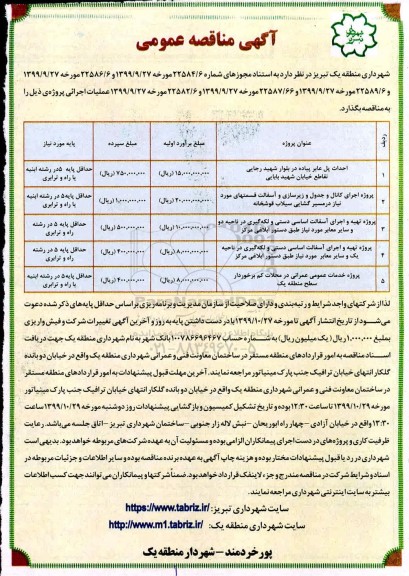 آگهی مناقصه عمومی
شهرداری منطقه یک تبریز در نظر دارد به استناد مجوزهای شماره ۲۲۵۸۴/۶ مورخه ۱۳۹۹/۹/۲۷ و ۲۲۵۸۶/۶ مورخه ۱۳۹۹/۹/۲۷
و ۲۲۵۸۹/۶ مورخه ۱۳۹۹/۹/۲۷ و ۲۲۵۸۷/۶۶ مورخه ۱۳۹۹/۹/۲۷ و ۲۲۵۸۲/۶ مورخه ۱۳۹۹/۹/۲۷ عملیات اجرائی پروژه‌ی ذیل را
به مناقصه بگذارد.
ردیف عنوان پروژه مبلغ برآورد اولیه مبلغ سپرده پایه مورد نیاز
۱ احداث پل عابر پیاده در بلوار شهید رجایی تقاطع خیابان شهید بابایی ۱۵,۰۰۰,۰۰۰,۰۰۰ (ریال) ۷۵۰,۰۰۰,۰۰۰ (ریال) حداقل پایه ۵ در رشته ابنیه یا راه و ترابری
۲ پروژه اجرای کانال و جدول و زیرسازی و آسفالت قسمتهای مورد نیاز در مسیر گشایی سیلاب قوشخانه ۲۰,۰۰۰,۰۰۰,۰۰۰ (ریال) ۱,۰۰۰,۰۰۰,۰۰۰ (ریال) حداقل پایه ۵ در رشته ابنیه یا راه و ترابری
۳ پروژه تهیه و اجرای آسفالت اساسی دستی و لکه‌گیری در ناحیه دو و سایر معابر مورد نیاز طبق دستور ابلاغی مرکز ۱۰,۰۰۰,۰۰۰,۰۰۰ (ریال) ۵۰۰,۰۰۰,۰۰۰ (ریال) حداقل پایه ۵ در رشته راه و ترابری
۴ پروژه تهیه و اجرای آسفالت اساسی دستی و لکه‌گیری در ناحیه یک و سایر معابر مورد نیاز طبق دستور ابلاغی مرکز ۸,۰۰۰,۰۰۰,۰۰۰ (ریال) ۴۰۰,۰۰۰,۰۰۰ (ریال) حداقل پایه ۵ در رشته راه و ترابری
۵ پروژه خدمات عمومی عمرانی در محلات کم برخوردار سطح منطقه یک ۸,۰۰۰,۰۰۰,۰۰۰ (ریال) ۴۰۰,۰۰۰,۰۰۰ (ریال) حداقل پایه ۵ در رشته ابنیه یا راه و ترابری
لذا از شرکتهای واجد شرایط و رتبه‌بندی و دارای صلاحیت از سازمان مدیریت و برنامه‌ریزی بر اساس حداقل پایه‌های ذکر شده دعوت
می‌شود از تاریخ انتشار آگهی تا مورخه ۱۳۹۹/۱۰/۲۷ با در دست داشتن پایه به روز و آخرین آگهی تغییرات شرکت و فیش واریزی
بمبلغ ۱,۰۰۰,۰۰۰ ریال (یک میلیون ریال) به شماره حساب ۱۰۰۷۸۶۶۹۶۴۶۷ بانک شهر به نام شهرداری منطقه یک جهت دریافت
اسناد مناقصه به امور قراردادهای منطقه مستقر در ساختمان معاونت فنی و عمرانی شهرداری منطقه یک واقع در خیابان دو بانده
گلکار انتهای خیابان ترافیک جنب پارک مینیاتور مراجعه نمایند. آخرین مهلت قبول پیشنهادات به امور قراردادهای منطقه مستقر
در ساختمان معاونت فنی و عمرانی شهرداری منطقه یک واقع در خیابان دو بانده گلکار انتهای خیابان ترافیک جنب پارک مینیاتور
مورخه ۱۳۹۹/۱۰/۲۹ تا ساعت ۱۲:۳۰ بوده و تاریخ تشکیل کمیسیون و بازگشایی پیشنهادات روز دوشنبه مورخه ۱۳۹۹/۱۰/۲۹ ساعت
۱۳:۳۰ واقع در خیابان آزادی - چهارراه ابوریحان - نبش لاله زار جنوبی - ساختمان شهرداری تبریز - اتاق جلسه می‌باشد. رعایت
ظرفیت کاری و پروژه‌های در دست اجرای پیمانکاران الزامی بوده و مسئولیت آن به عهده شرکت‌های مربوطه خواهد بود. بدیهی است
شهرداری در رد یا قبول پیشنهادات مختار بوده و هزینه چاپ آگهی به عهده برنده مناقصه بوده و سایر اطلاعات و جزئیات مربوطه در
اسناد و شرایط شرکت در مناقصه مندرج و جزء لاینفک قرارداد خواهد بود. ضمناً شرکتها و پیمانکاران می‌توانند جهت کسب اطلاعات
بیشتر به سایت اینترنتی شهرداری مراجعه نمایند.
سایت شهرداری تبریز: https://www.tabriz.ir/
سایت شهرداری منطقه یک: http://www.m1.tabriz.ir/
پورخردمند - شهردار منطقه یک